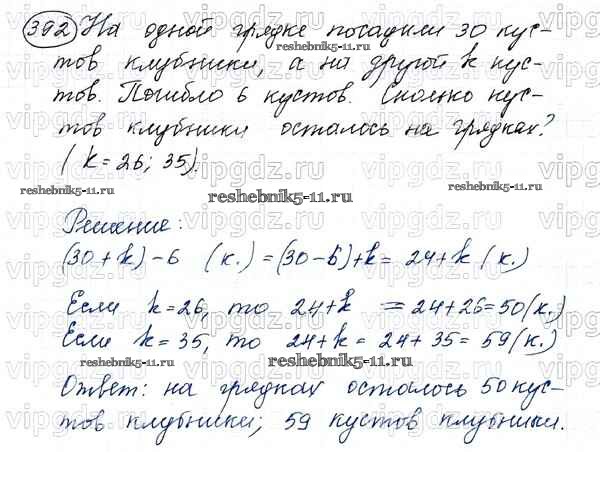 392 На одной грядке посадили 30 кус-
тов клубники, а на другой k кус-
тов. Погибло 6 кустов. Сколько кус-
тов клубники осталось на грядках?
(k = 26; 35).
Решение:
(30 + k) - 6 (к.) = (30 - 6) + k = 24 + k (к.)
Если k = 26, то 24 + k = 24 + 26 = 50 (к.)
Если k = 35, то 24 + k = 24 + 35 = 59 (к.)
Ответ: на грядках осталось 50 кус-
тов клубники; 59 кустов клубники.
reshebnik5-11.ru
vipgdz.ru